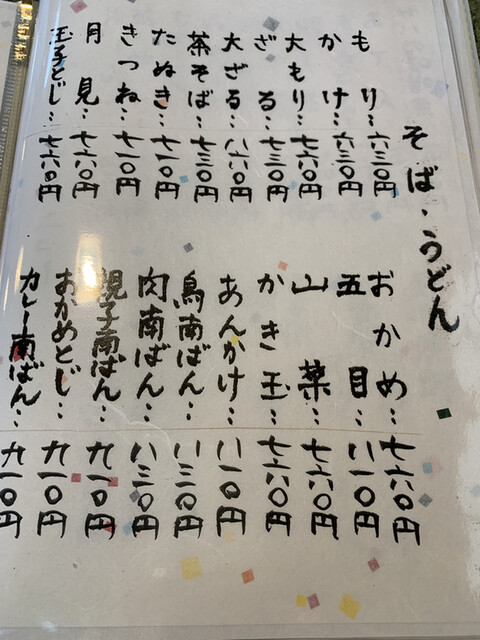 そば・うどん
もり…六三〇円
かけ…六三〇円
大もり…七六〇円
ざる…七三〇円
大ざる…八六〇円
茶そば…七三〇円
たぬき…七一〇円
きつね…七一〇円
月見…七六〇円
玉子とじ…七六〇円
おかめ…七六〇円
五目…八一〇円
山菜…七六〇円
かき玉…七六〇円
あんかけ…八一〇円
鳥南ばん…八三〇円
肉南ばん…八三〇円
親子南ばん…九一〇円
おかめとじ…九一〇円
カレー南ばん…九一〇円